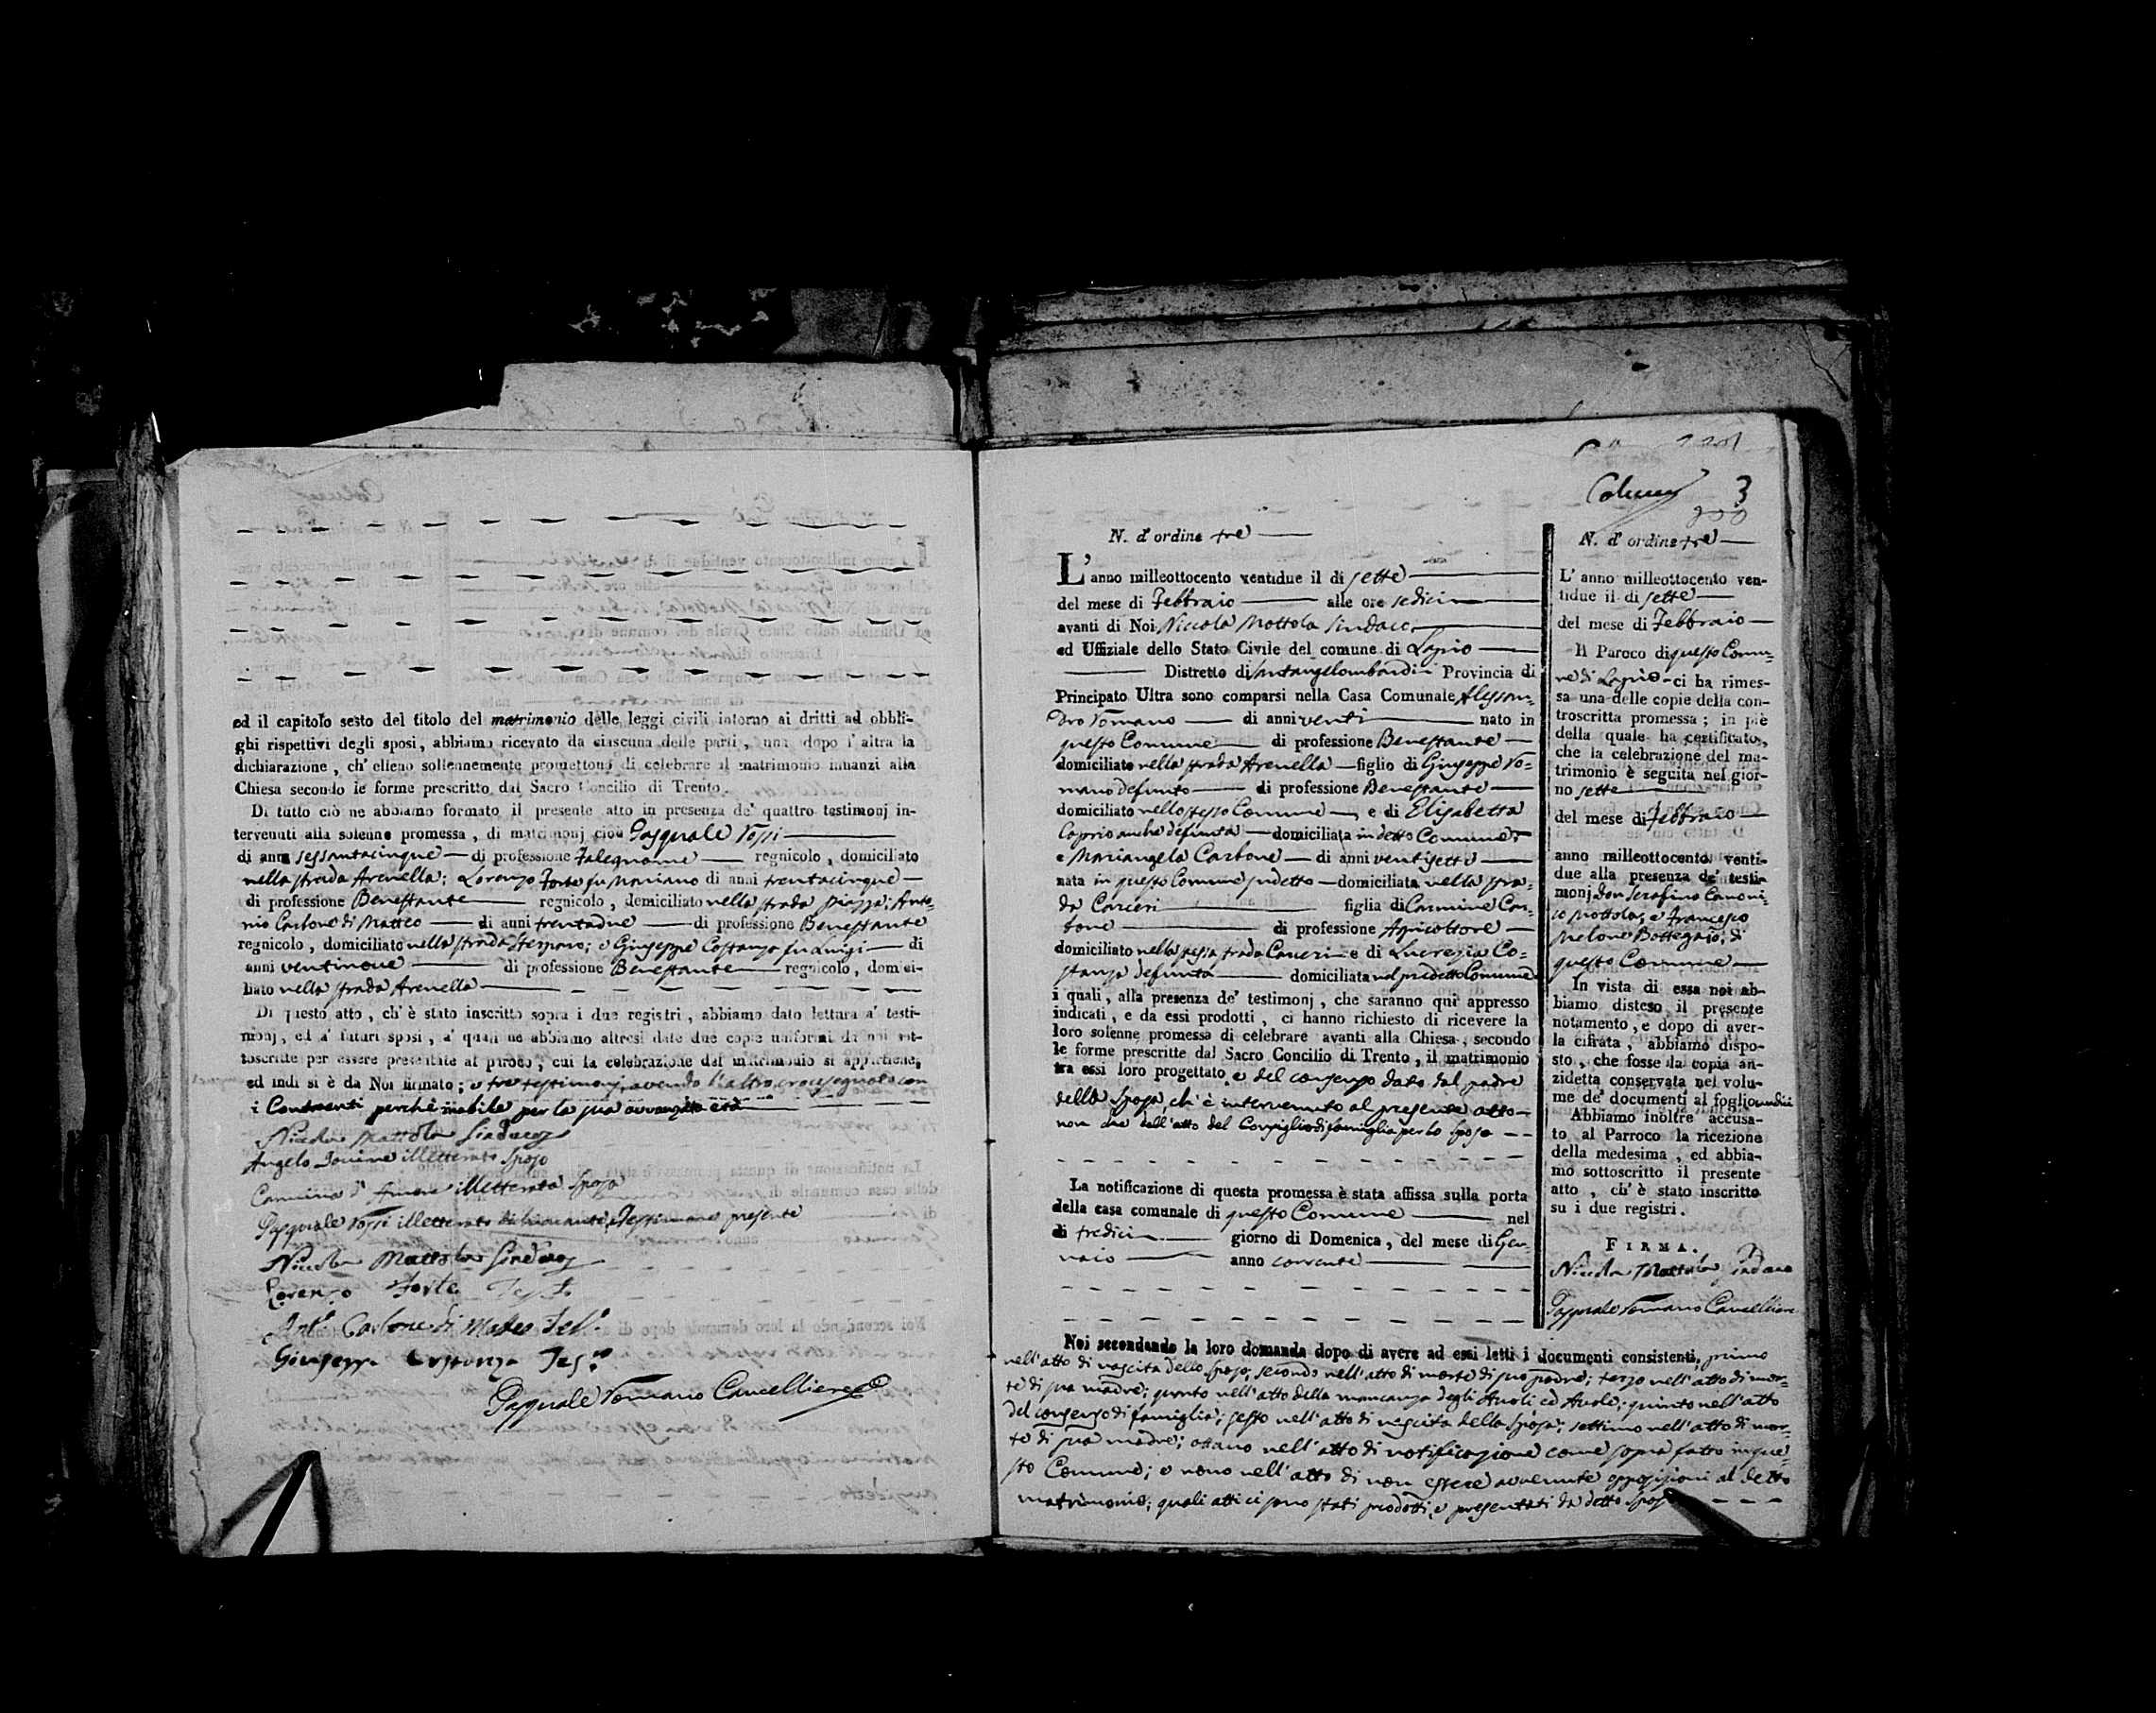 ed il capitolo sesto del titolo del matrimonio delle leggi civili intorno ai dritti ad obbli-
ghi rispettivi degli sposi, abbiamo ricevuto da ciascuna delle parti, una dopo l'altra la
dichiarazione, ch'elleno sollennemente promettono di celebrare il matrimonio innanzi alla
Chiesa secondo le forme prescritto dal Sacro Concilio di Trento.
Di tutto ciò ne abbiamo formato il presente atto in presenza de' quattro testimonj in-
tervenuti alla solenne promessa, di matrimonj cioè Pasquale Rossi
di anni sessantacinque di professione Falegname regnicolo, domiciliato
nella strada Arenella; Lorenzo Forte fu Mariano di anni trentacinque
di professione Benestante regnicolo, domiciliato nella strada piazza; Anto-
nio Carbone di Matteo di anni trentadue di professione Benestante
regnicolo, domiciliato nella strada; e Giuseppe Costanza fu Luigi di
anni ventinove di professione Benestante regnicolo, domici-
liato nella strada Arenella
Di questo atto, ch'è stato inscritto sopra i due registri, abbiamo dato lettura a' testi-
monj, ed a' futuri sposi, a' quali ne abbiamo altresì date due copie uniformi da noi sot-
toscritte per essere presentate al paroco, cui la celebrazione del matrimonio si appartiene,
ed indi si è da Noi firmato; e tre testimonj, avendo l'altro crocesegnato con
i Contraenti perchè inabile per la sua avvanzata età
Nicola Mottola Sindaco
Angelo Iovine illetterato Sposo
Carmina d'Amore illetterata Sposa
Pasquale Rossi illetterato Testimone presente
Nicola Mottola Sindaco
Lorenzo Forte Test.
Ant.o Carbone di Matteo Tes.o
Giuseppe Costanza Tes.o
Pasquale Romano Cancelliere
3
200
N. d'ordine tre
L'anno milleottocento ventidue il di sette
del mese di Febbraio alle ore sedici
avanti di Noi Niccola Mottola Sindaco
ed Uffiziale dello Stato Civile del comune di Lapio
Distretto di Santangelombardi Provincia di
Principato Ultra sono comparsi nella Casa Comunale Alessan-
dro Romano di anni venti nato in
questo Comune di professione Benestante
domiciliato nella strada Arenella figlio di Giuseppe Ro-
mano defunto di professione Benestante
domiciliato nello stesso Comune e di Elisabetta
Caprio anche defunta domiciliata in detto Comune
e Mariangela Carbone di anni ventisette
nata in questo Comune sudetto domiciliata nella stra-
da Carceri figlia di Carmine Car-
bone di professione Agricoltore
domiciliato nella stessa strada Carceri e di Lucrezia Co-
stanza defunta domiciliata nel predetto Comune
i quali, alla presenza de' testimonj, che saranno qui appresso
indicati, e da essi prodotti, ci hanno richiesto di ricevere la
loro solenne promessa di celebrare avanti alla Chiesa, secondo
le forme prescritte dal Sacro Concilio di Trento, il matrimonio
tra essi loro progettato, e del consenso dato dal padre
della Sposa, ch'è intervenuto al presente atto
non che dell'atto del Consiglio di famiglia per lo Sposo
La notificazione di questa promessa è stata affissa sulla porta
della casa comunale di questo Comune nel
di tredici giorno di Domenica, del mese di Gen-
naio anno corrente
Noi secondando la loro domanda dopo di avere ad essi letti i documenti consistenti, primo
nell'atto di nascita dello Sposo; secondo nell'atto di morte di suo padre; terzo nell'atto di mor-
te di sua madre; quarto nell'atto della mancanza degli Avoli ed Avole; quinto nell'atto
del consenso di famiglia; sesto nell'atto di nascita della Sposa; settimo nell'atto di mor-
te di sua madre; ottavo nell'atto di notificazione come sopra fatto in que-
sto Comune; e nono nell'atto di non essere avvenute opposizioni al detto
matrimonio; quali atti ci sono stati prodotti, e presentati da detto Sposo
N. d'ordine tre
L'anno milleottocento ven-
tidue il di sette
del mese di Febbraio
Il Paroco di questo Comu-
ne di Lapio ci ha rimes-
sa una delle copie della con-
troscritta promessa; in piè
della quale ha certificato,
che la celebrazione del ma-
trimonio è seguita nel gior-
no sette
del mese di Febbraio
anno milleottocento venti-
due alla presenza de' testi-
monj Don Serafino Canoni-
co Mottola, e Francesco
Melone Bottegaio, di
questo Comune
In vista di essa noi ab-
biamo disteso il presente
notamento, e dopo di aver-
la cifrata, abbiamo dispo-
sto, che fosse la copia an-
zidetta conservata nel volu-
me de' documenti al foglio undici
Abbiamo inoltre accusa-
to al Parroco la ricezione
della medesima, ed abbia-
mo sottoscritto il presente
atto, ch'è stato inscritto
su i due registri.
FIRMA.
Nicola Mottola Sindaco
Pasquale Romano Cancelliere